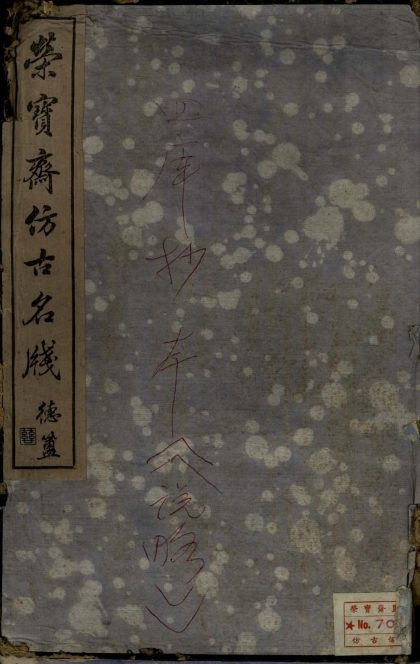 榮寶齋仿古名牋
德𥁕
四庫抄本《說略》
榮寶齋
★ No. 70
仿古